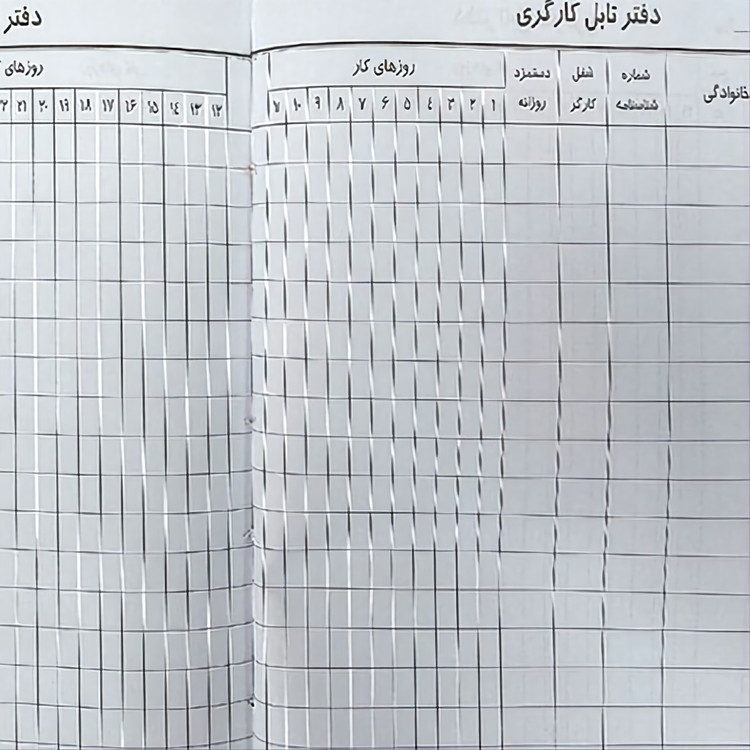 دفتر تابل کارگری
خانوادگی
شماره شناسنامه
شغل کارگر
دستمزد روزانه
روزهای کار
۱ ۲ ۳ ۴ ۵ ۶ ۷ ۸ ۹ ۱۰ ۱۱
دفتر
روزهای
۱۲ ۱۳ ۱۴ ۱۵ ۱۶ ۱۷ ۱۸ ۱۹ ۲۰ ۲۱ ۲۲